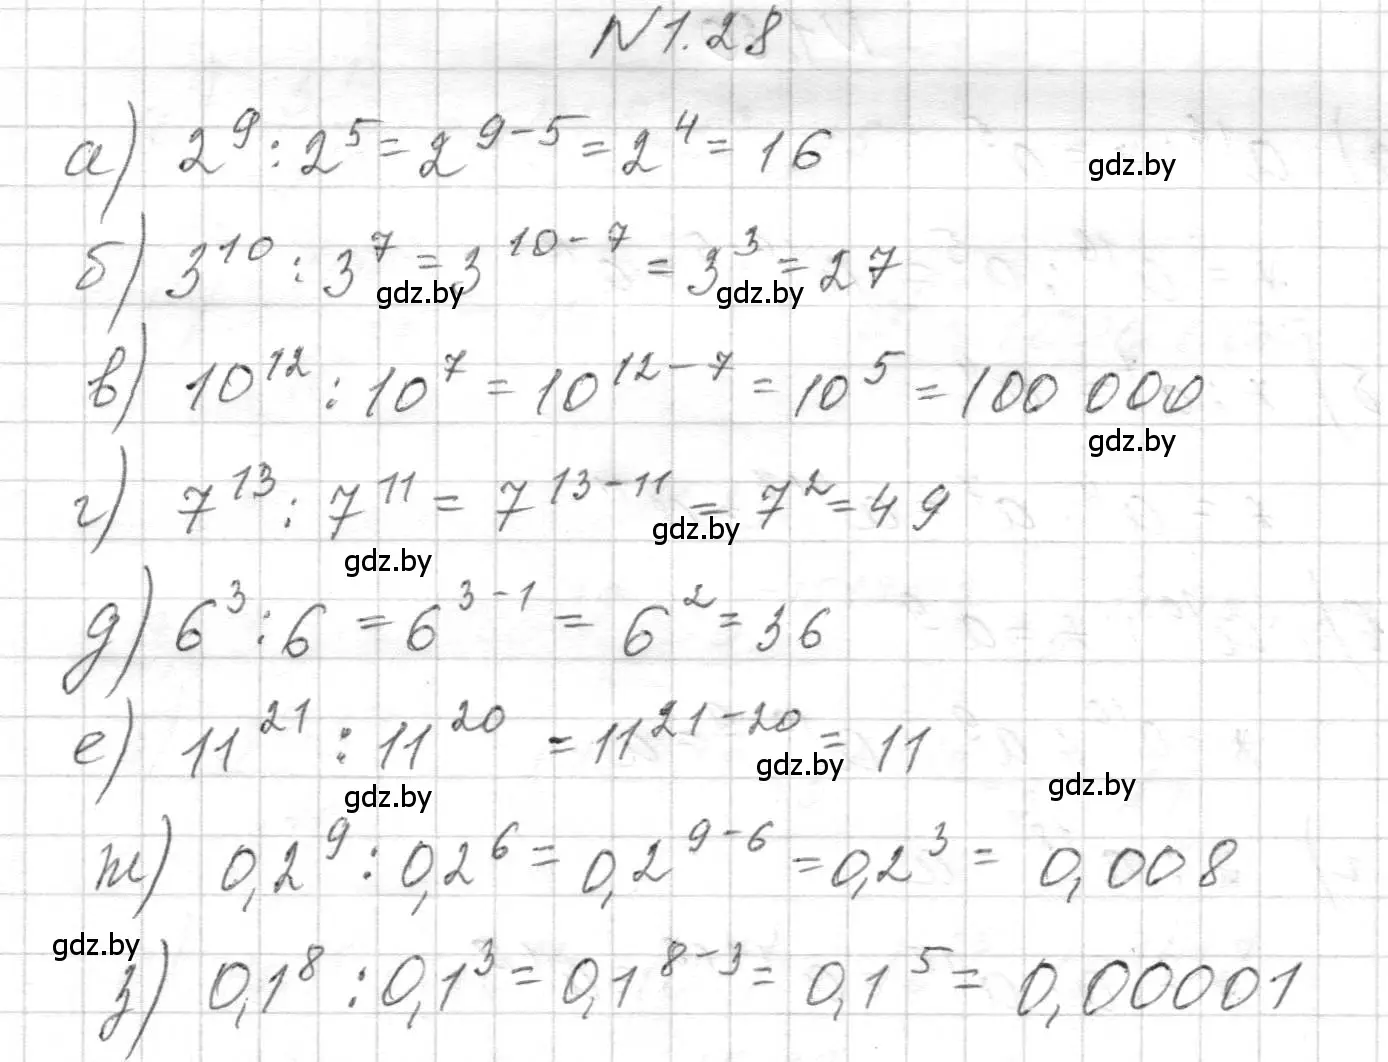 N 1.28
а) 2⁹ : 2⁵ = 2⁹⁻⁵ = 2⁴ = 16
gdz.by
б) 3¹⁰ : 3⁷ = 3¹⁰⁻⁷ = 3³ = 27
gdz.by gdz.by
в) 10¹² : 10⁷ = 10¹²⁻⁷ = 10⁵ = 100 000
gdz.by
г) 7¹³ : 7¹¹ = 7¹³⁻¹¹ = 7² = 49
gdz.by gdz.by
д) 6³ : 6 = 6³⁻¹ = 6² = 36
е) 11²¹ : 11²⁰ = 11²¹⁻²⁰ = 11
gdz.by gdz.by gdz.by
ж) 0,2⁹ : 0,2⁶ = 0,2⁹⁻⁶ = 0,2³ = 0,008
gdz.by
з) 0,1⁸ : 0,1³ = 0,1⁸⁻³ = 0,1⁵ = 0,00001